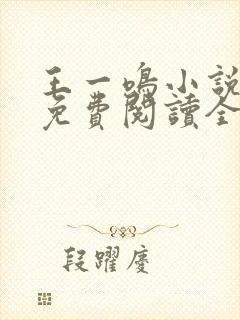 王一鳴小說
免費閱讀全
段躍慶